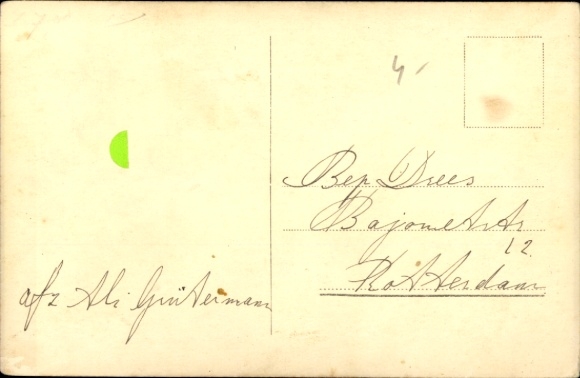 4.-
Bep Drees
Bajonetstr
12
Rotterdam
afz Ali Grütermann